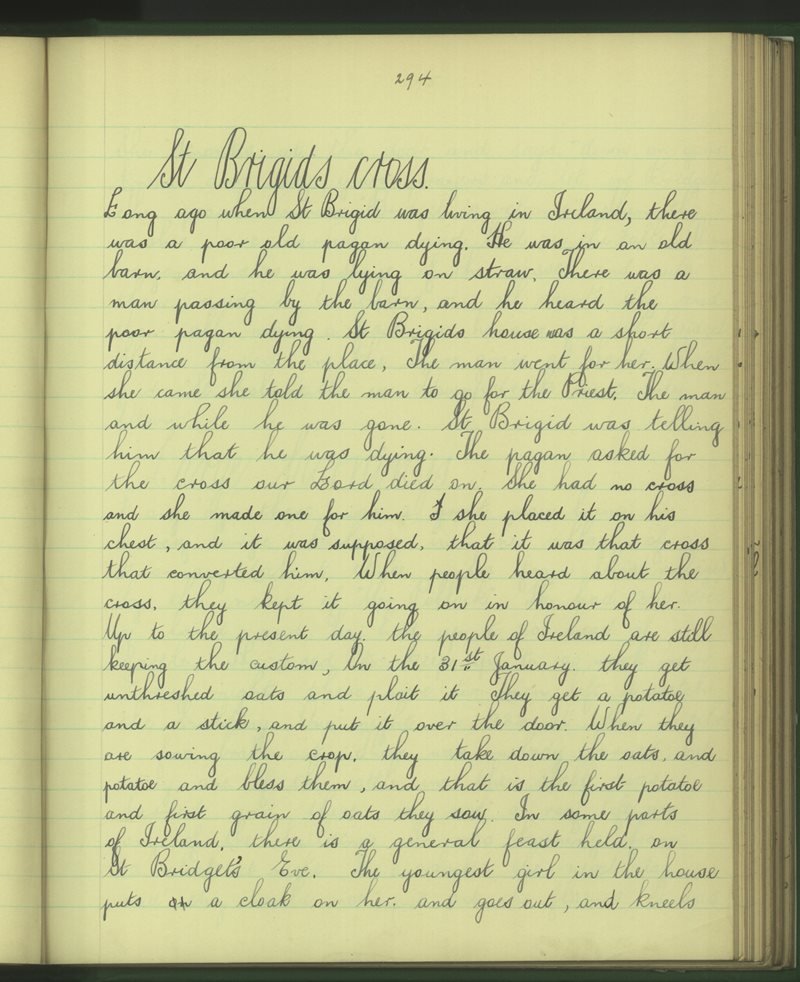 294
St Brigids cross.
Long ago when St Brigid was living in Ireland, there
was a poor old pagan dying. He was in an old
barn, and he was lying on straw. There was a
man passing by the barn, and he heard the
poor pagan dying. St Brigids house was a short
distance from the place, The man went for her. When
she came she told the man to go for the Priest. The man
and while he was gone. St Brigid was telling
him that he was dying. The pagan asked for
the cross our Lord died on. She had no cross
and she made one for him. I she placed it on his
chest, and it was supposed, that it was that cross
that converted him. When people heard about the
cross, they kept it going on in honour of her.
Up to the present day. the people of Ireland are still
keeping the custom, On the 31st January. they get
unthreshed oats and plait it They get a potatoe
and a stick, and put it over the door. When they
are sowing the crop, they take down the oats, and
potatoe and bless them, and that is the first potatoe
and first grain of oats they sow. In some parts
of Ireland, there is a general feast held, on
St Bridget's Eve. The youngest girl in the house
puts on a cloak on her. and goes out, and kneels